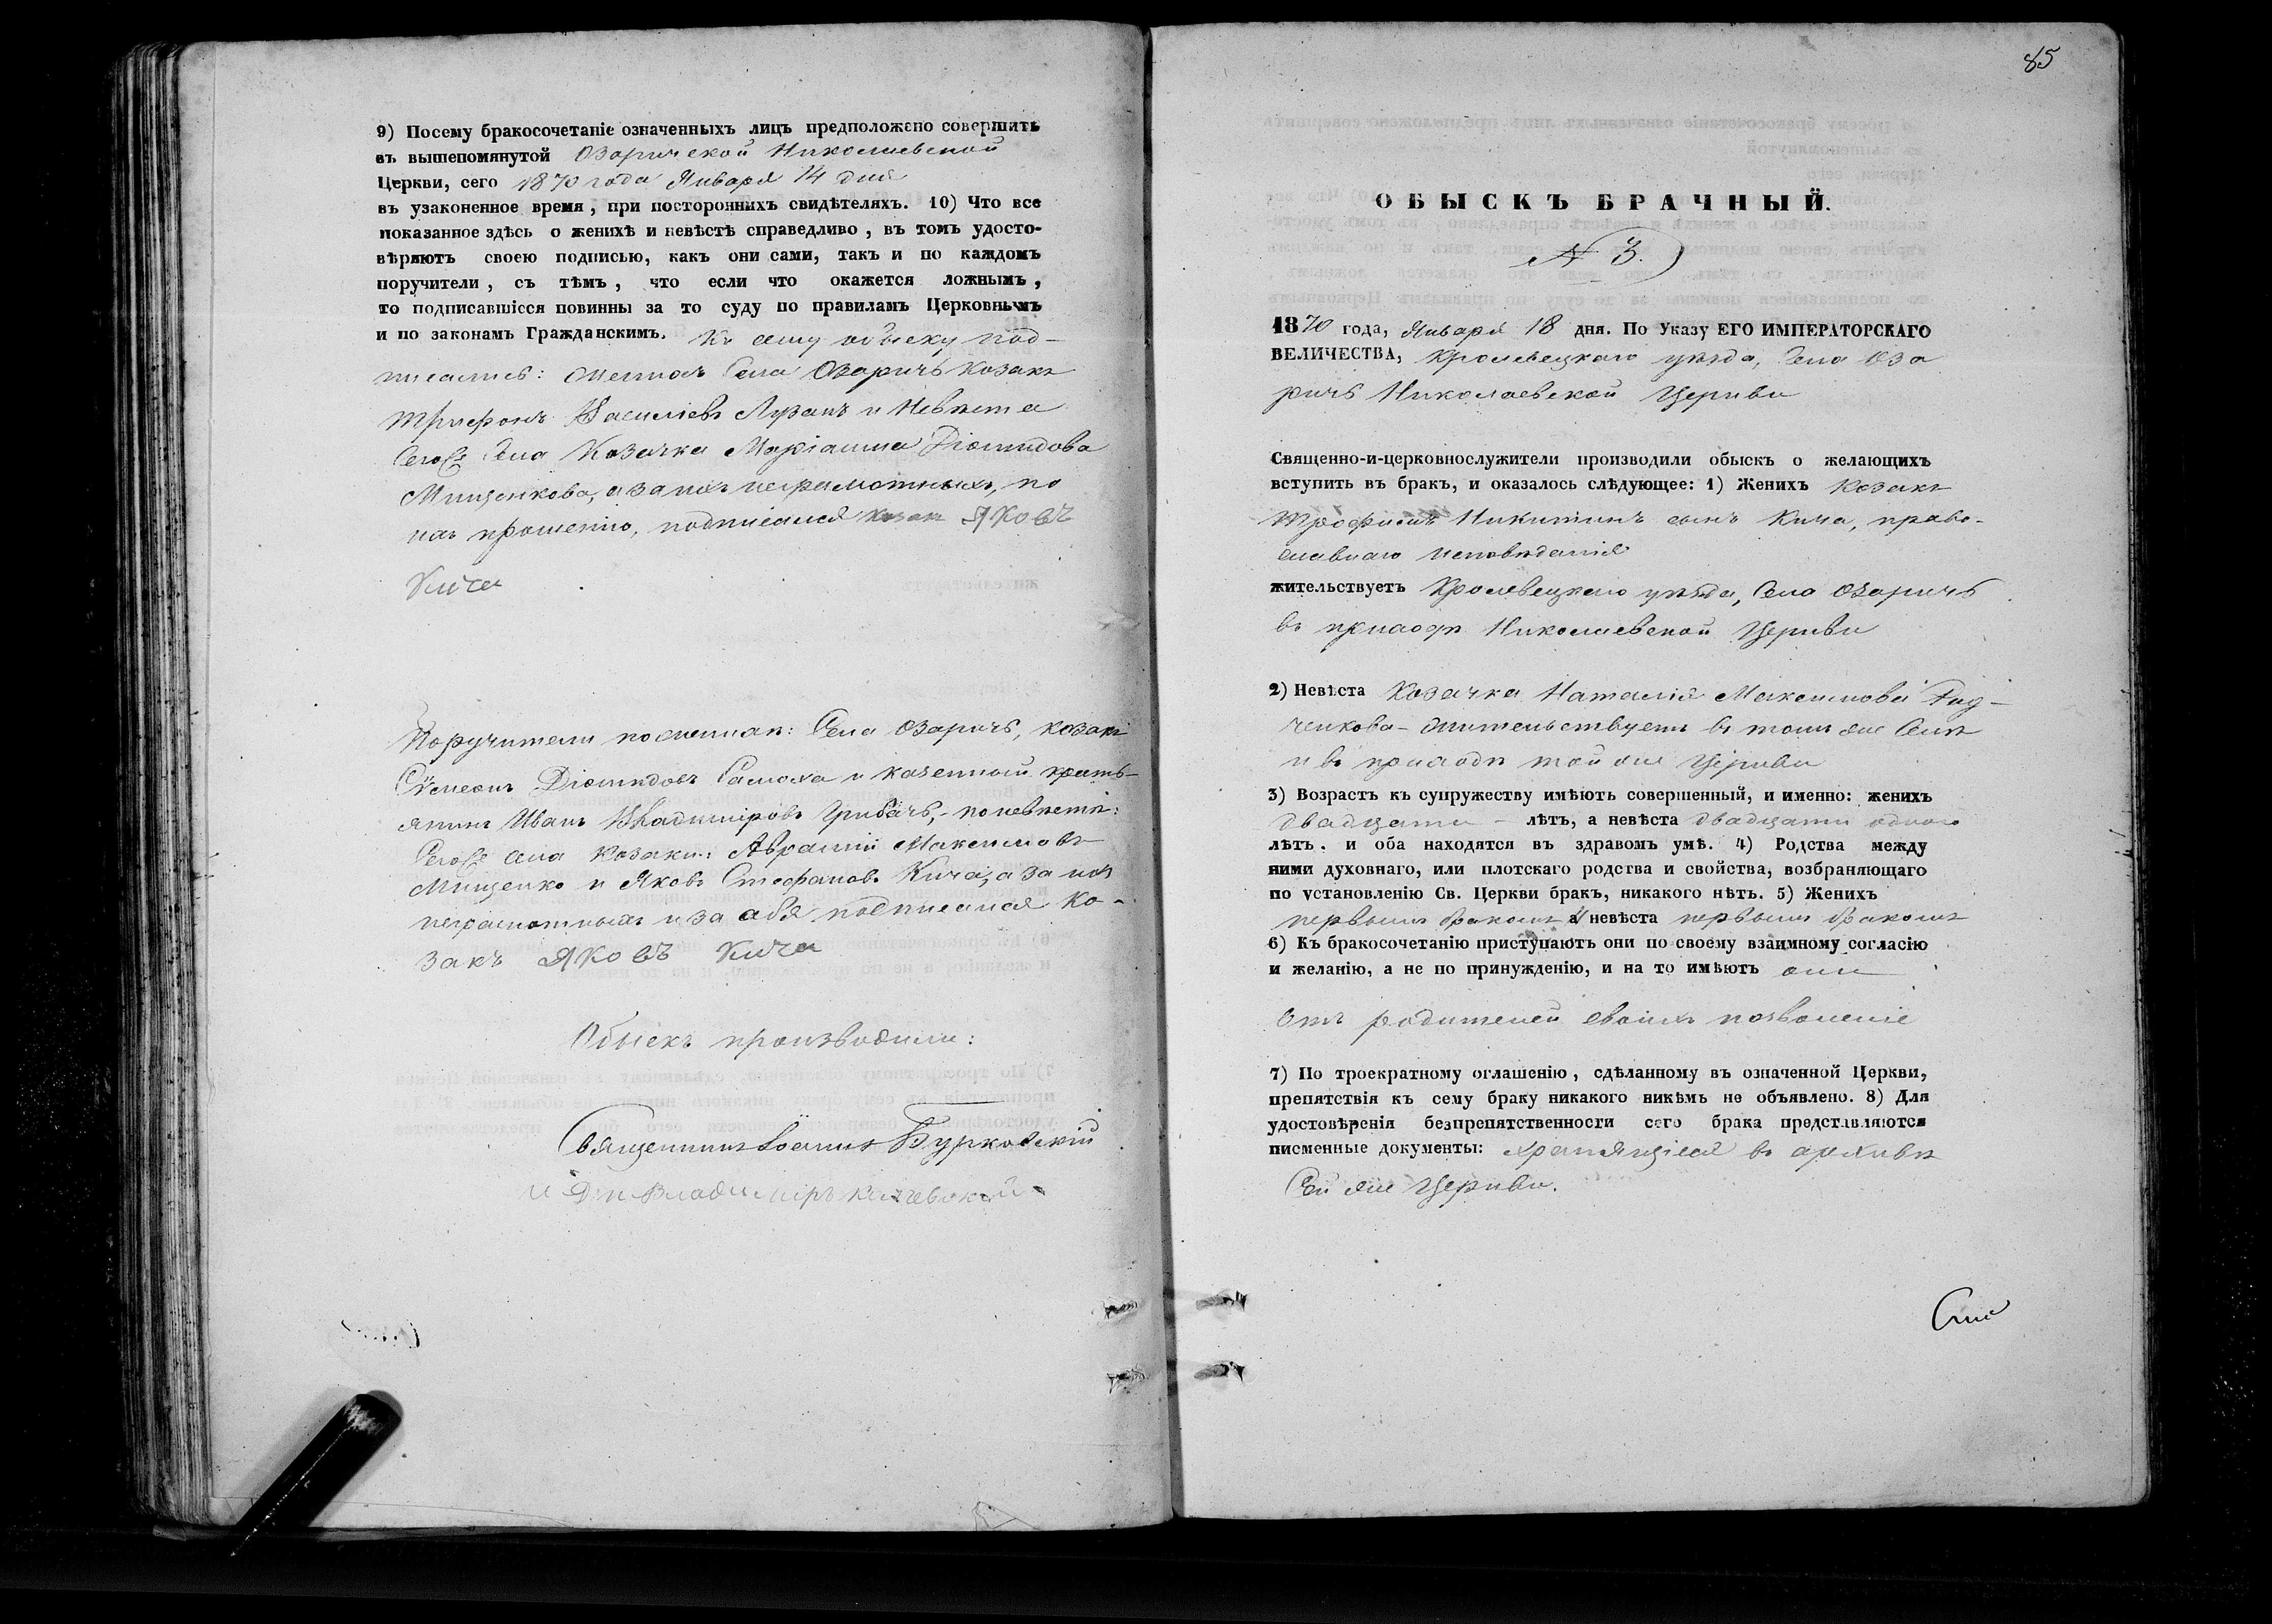 9) Посему бракосочетаніе означенныхъ лицъ предположено совершить
въ вышепомянутой Озаричской Николаевской
Церкви, сего 1870 года Января 14 дня
въ узаконенное время, при постороннихъ свидѣтеляхъ. 10) Что все
показанное здѣсь о женихѣ и невѣстѣ справедливо, въ томъ удосто-
вѣряютъ своею подписью, какъ они сами, такъ и по каждомъ
поручители, съ тѣмъ, что если что окажется ложнымъ,
то подписавшіеся повинны за то суду по правиламъ Церковнымъ
и по законамъ Гражданскимъ. Къ сему обыску под-
писались: Женихъ Села Озаричь Козакъ
Трифонъ Васильевъ и Невѣста
Сегожъ Села Козачка Маріанна Діомидова
Мищенкова, а за ихъ неграмотныхъ, по
ихъ прошенію, подписался козакъ Яковъ
Кича
Поручители по женихѣ: Села Озаричь, козакъ
Симеонъ Діомидовъ Самоха и казенный кресть-
янинъ Иванъ Владиміровъ Грибачь, - по невѣстѣ:
Сегожъ села козаки: Аврамій Максимовъ
Мищенко и Яковъ Стефановъ Кича, а за ихъ
неграмотныхъ и за себя подписался ко-
закъ Яковъ Кича
Обыскъ производили:
Священникъ Іоаннъ Бурковскій
и Владимиръ
85
ОБЫСКЪ БРАЧНЫЙ.
№ 3.
1870 года, Января 18 дня. По Указу ЕГО ИМПЕРАТОРСКАГО
ВЕЛИЧЕСТВА, Кролевецкаго уѣзда, Села Оза
ричь Николаевской Церкви
Священно-и-церковнослужители производили обыскъ о желающихъ
вступить въ бракъ, и оказалось слѣдующее: 1) Женихъ Козакъ
Трофимъ Никитинъ сынъ Кича, право-
славнаго исповѣданія
жительствуетъ Кролевецкаго уѣзда, Села Озаричь
въ приходѣ Николаевской Церкви
2) Невѣста Козачка Наталія Максимова Рад-
ченкова - жительствуетъ въ томъ же Селѣ
и въ приходѣ той же Церкви
3) Возрастъ къ супружеству имѣютъ совершенный, и именно: женихъ
двадцати - лѣтъ, а невѣста двадцати одного
лѣтъ. и оба находятся въ здравомъ умѣ. 4) Родства между
ними духовнаго, или плотскаго родства и свойства, возбраняющаго
по установленію Св. Церкви бракъ, никакого нѣтъ. 5) Женихъ
первымъ бракомъ а невѣста первымъ бракомъ
6) Къ бракосочетанію приступаютъ они по своему взаимному согласію
и желанію, а не по принужденію, и на то имѣютъ они
отъ родителей своихъ позволеніе
7) По троекратному оглашенію, сдѣланному въ означенной Церкви,
препятствія къ сему браку никакого никѣмъ не объявлено. 8) Для
удостовѣренія безпрепятственности сего брака представляются
писменные документы: хранящіеся въ архивѣ
Сей же Церкви.